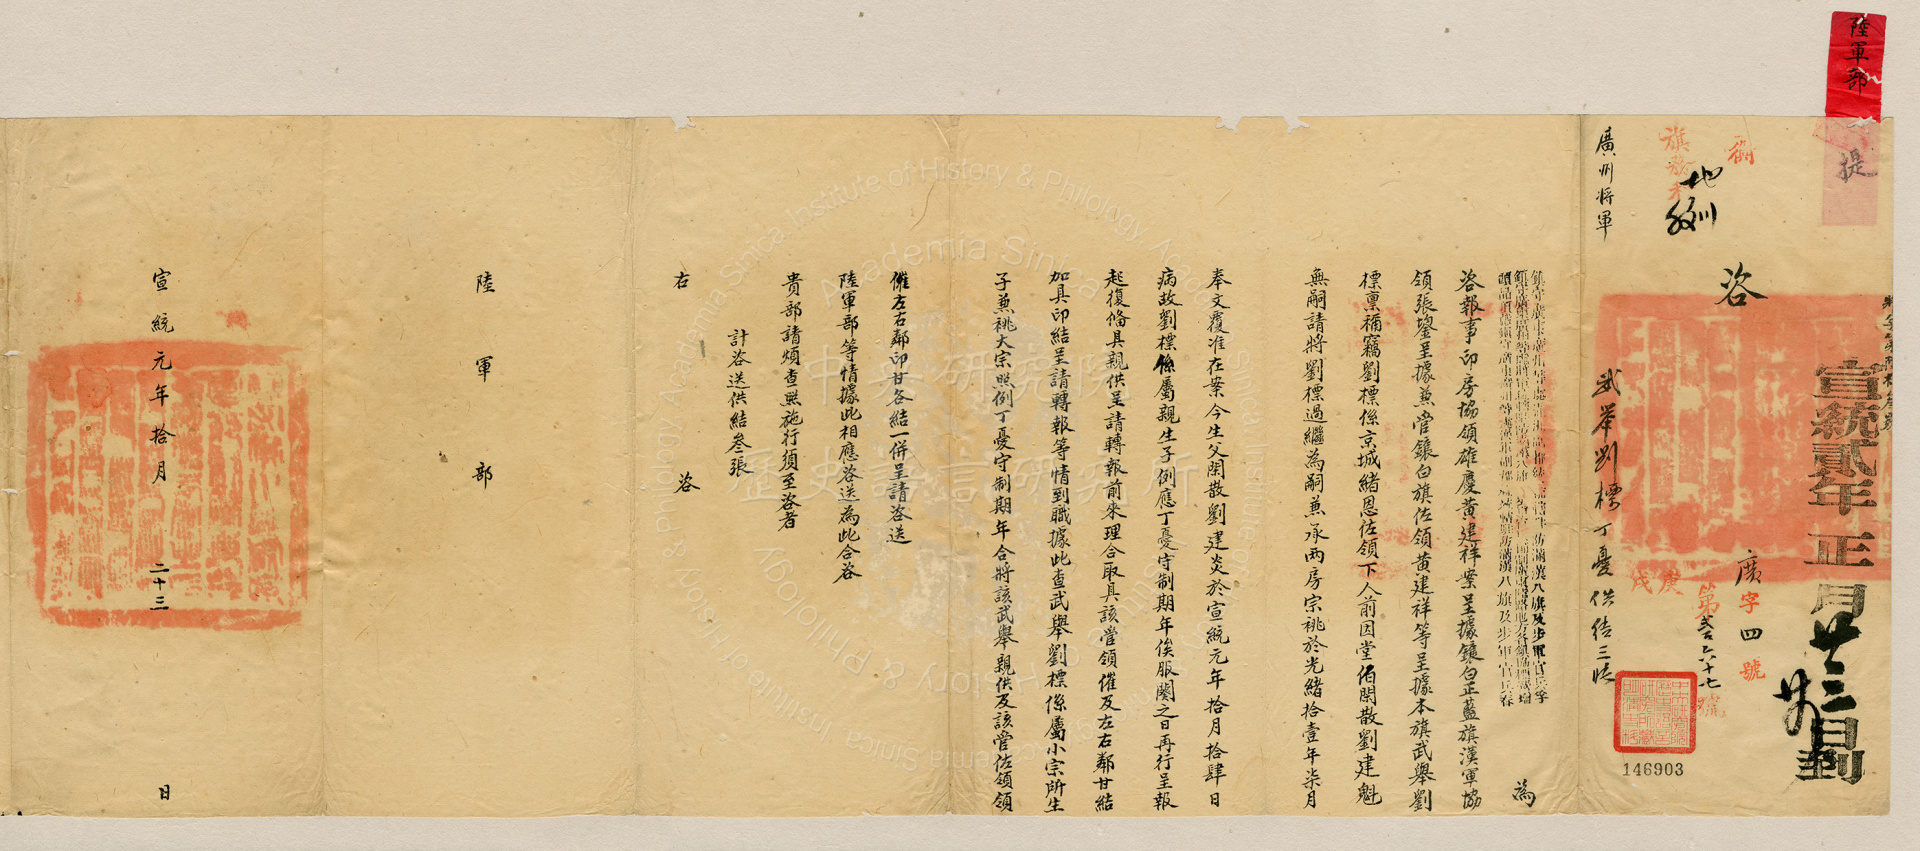 陸軍部
提
宣統貳年正月廿三日到
咨
廣字四號
第弍百六十七號
庚戌
地
廣州將軍
武舉劉標丁憂供結三帋
146903
為
咨報事印房協領雄慶黃建祥案呈據鑲白正藍旗漢軍協
領張鋆呈據兼管鑲白旗佐領黃建祥等呈據本旗武舉劉
標禀稱竊劉標係京城緒恩佐領下人前因堂伯閑散劉建魁
無嗣請將劉標過繼為嗣兼承兩房宗祧於光緒拾壹年柒月
奉文覆准在案今生父閑散劉建炎於宣統元年拾月拾肆日
病故劉標係屬親生子例應丁憂守制期年俟服闋之日再行呈報
起復俻具親供呈請轉報前來理合取具該管領催及左右鄰甘結
加具印結呈請轉報等情到職據此查武舉劉標係屬小宗所生
子兼祧大宗照例丁憂守制期年合將該武舉親供及該管佐領領
催左右鄰印甘各結一併呈請咨送
陸軍部等情據此相應咨送為此合咨
貴部請煩查照施行須至咨者
計咨送供結叁張
右咨
陸軍部
宣統元年拾月二十三日
中央研究院
歷史語言研究所
Academia Sinica Institute of History & Philology